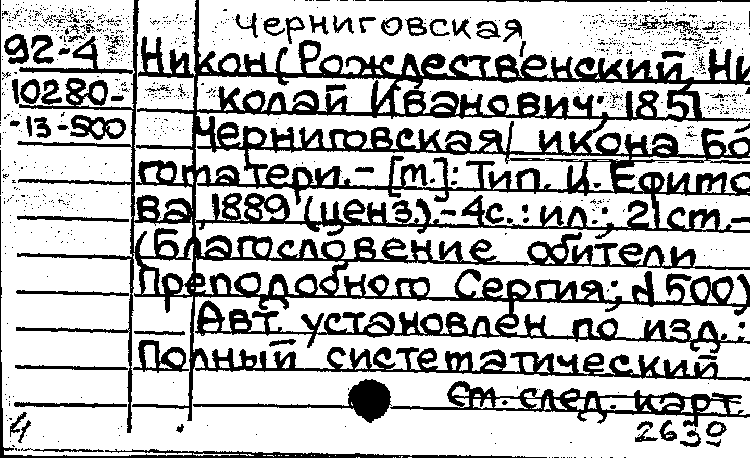 Черниговская
92-4 Никон (Рождественский, Ни
10280- колай Иванович; 1851
-13-500 Черниговская икона Бо
гоматери.- [М.]: Тип. И. Ефимо
ва, 1889 (ценз.).- 4с.: ил.; 21см.-
(Благословение обители
Преподобного Сергия; № 500)
Авт. установлен по изд.:
Полный систематический
См. след. карт.
4 2639